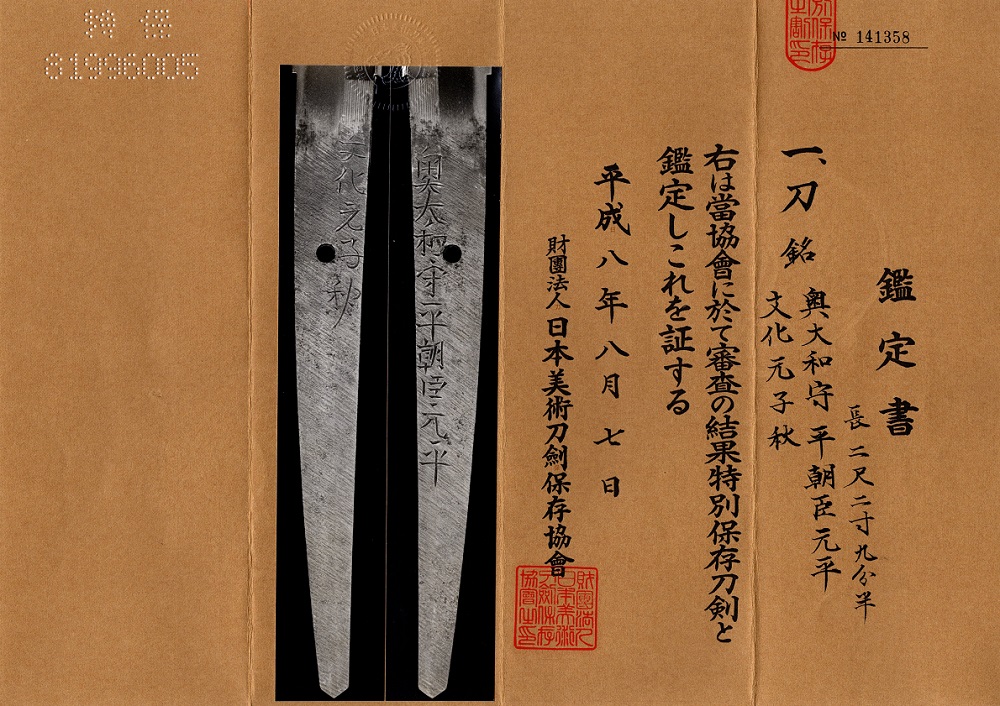 特保
81996005
No 141358
鑑定書
長二尺二寸九分半
一、刀 銘 奥大和守平朝臣元平
文化元子秋
右は當協會に於て審査の結果特別保存刀剣と
鑑定しこれを証する
平成八年八月七日
財團法人日本美術刀劍保存協會
奥大和守平朝臣元平
文化元子秋